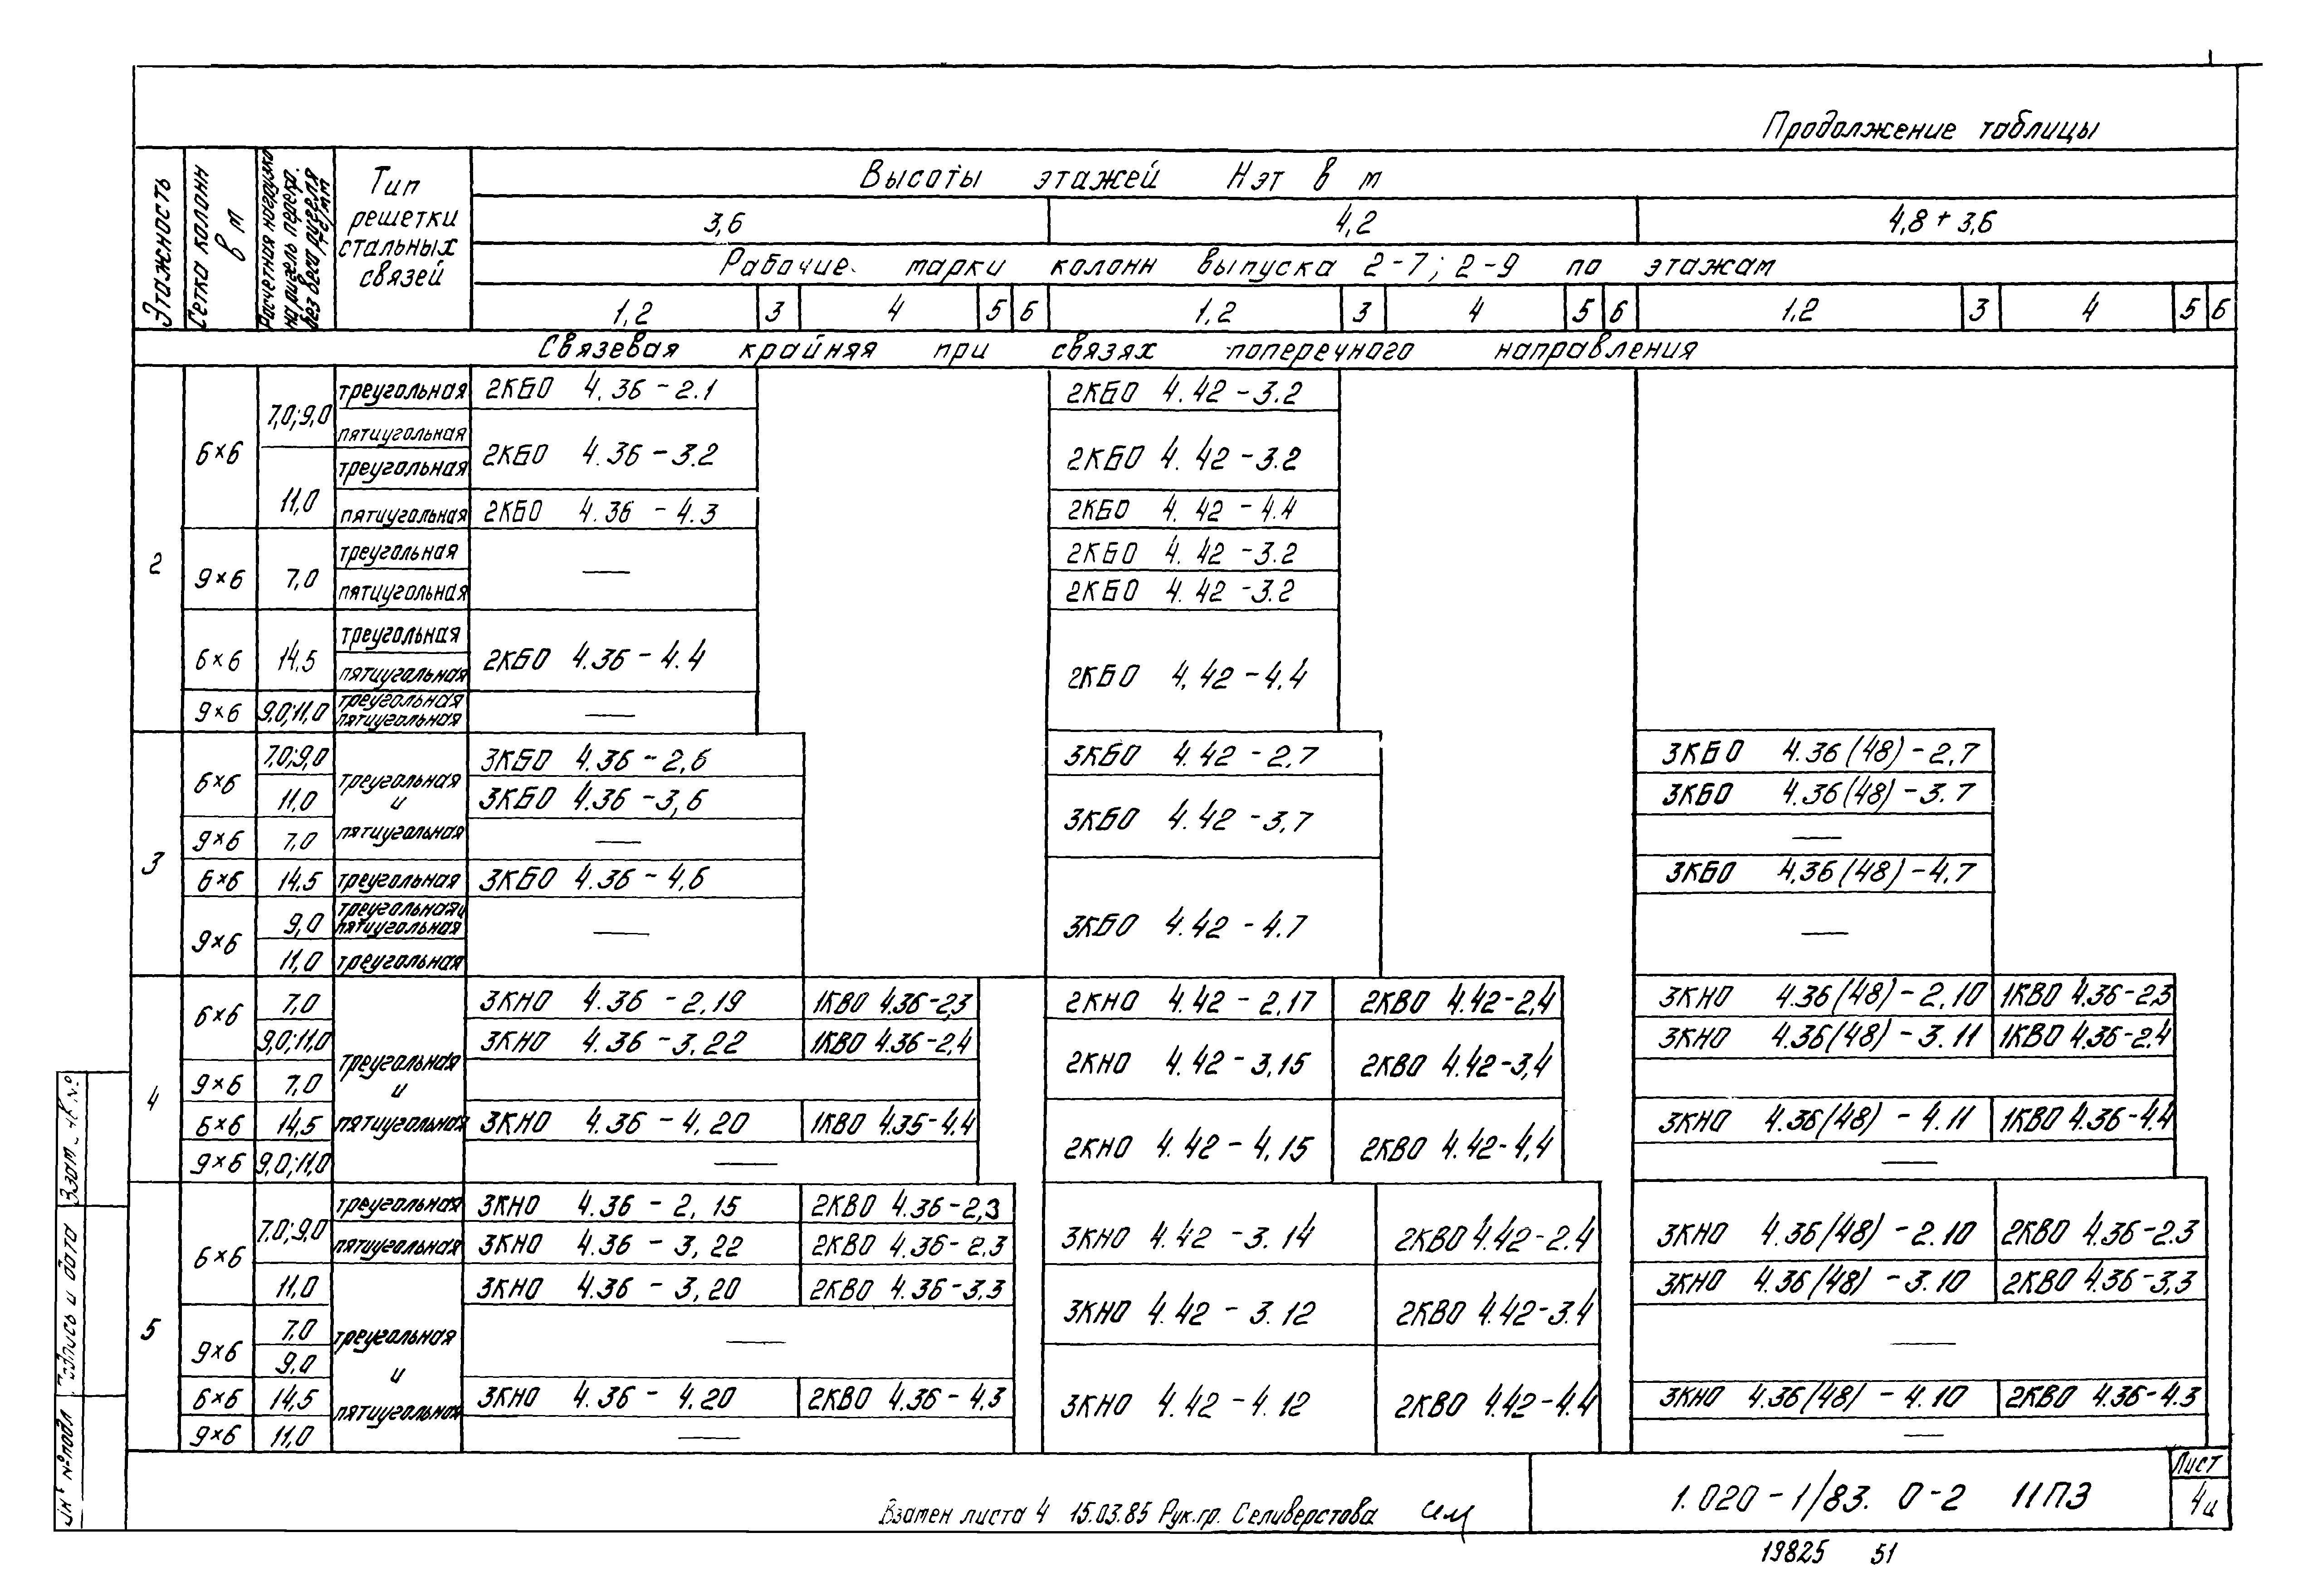 Продолжение таблицы
Этажность
Сетка колонн в м
Расчетная нагрузка на ригель перекр. без веса ригеля тс/м
Тип решетки стальных связей
Высоты этажей Нэт в м
3,6 4,2 4,8 + 3,6
Рабочие марки колонн выпуска 2-7; 2-9 по этажам
1,2 3 4 5 6 1,2 3 4 5 6 1,2 3 4 5 6
Связевая крайняя при связях поперечного направления
2 6×6 7,0;9,0 треугольная 2КБО 4.36-2.1 2КБО 4.42-3.2
пятиугольная 2КБО 4.36-3.2 2КБО 4.42-3.2
11,0 треугольная
пятиугольная 2КБО 4.36-4.3 2КБО 4.42-4.4
9×6 7,0 треугольная — 2КБО 4.42-3.2
пятиугольная 2КБО 4.42-3.2
6×6 14.5 треугольная 2КБО 4.36-4.4 2КБО 4.42-4.4
пятиугольная
9×6 9,0;11,0 треугольная —
пятиугольная
3 6×6 7,0;9,0 треугольная и пятиугольная 3КБО 4.36-2,6 3КБО 4.42-2,7 3КБО 4.36(48)-2,7
11,0 3КБО 4.36-3,6 3КБО 4.42-3,7 3КБО 4.36(48)-3.7
9×6 7,0 — —
6×6 14,5 треугольная 3КБО 4.36-4,6 3КБО 4.42-4.7 3КБО 4,36(48)-4,7
9×6 9,0 треугольная и — —
пятиугольная
11,0 треугольная
4 6×6 7,0 треугольная и пятиугольная 3КНО 4.36-2,19 1КВО 4.36-2,3 2КНО 4.42-2,17 2КВО 4.42-2,4 3КНО 4.36(48)-2,10 1КВО 4.36-2,3
9,0;11,0 3КНО 4.36-3.22 1КВО 4.36-2,4 2КНО 4.42-3,15 2КВО 4.42-3,4 3КНО 4.36(48)-3.11 1КВО 4.36-2.4
9×6 7,0
6×6 14,5 3КНО 4.36-4,20 1КВО 4.36-4.4 2КНО 4.42-4,15 2КВО 4.42-4,4 3КНО 4.36(48)-4.11 1КВО 4.36-4.4
9×6 9,0;11,0 — —
5 6×6 7,0;9,0 треугольная 3КНО 4.36-2,15 2КВО 4.36-2,3 3КНО 4.42-3.14 2КВО 4.42-2.4 3КНО 4.36(48)-2.10 2КВО 4.36-2.3
пятиугольная 3КНО 4.36-3,22 2КВО 4.36-2.3
11,0 треугольная и пятиугольная 3КНО 4.36-3,20 2КВО 4.36-3.3 3КНО 4.42-3.12 2КВО 4.42-3.4 3КНО 4.36(48)-3.10 2КВО 4.36-3,3
9×6 7,0 — —
9,0
6×6 14,5 3КНО 4.36-4.20 2КВО 4.36-4,3 3КНО 4.42-4.12 2КВО 4.42-4.4 3КНО 4.36(48)-4.10 2КВО 4.36-4.3
9×6 11,0 — —
Взам. инв №
Подпись и дата
Инв № подл
Взамен листа 4 15.03.85 Рук.гр. Селиверстова
1.020-1/83. 0-2 11ПЗ
Лист
4и
19825 51